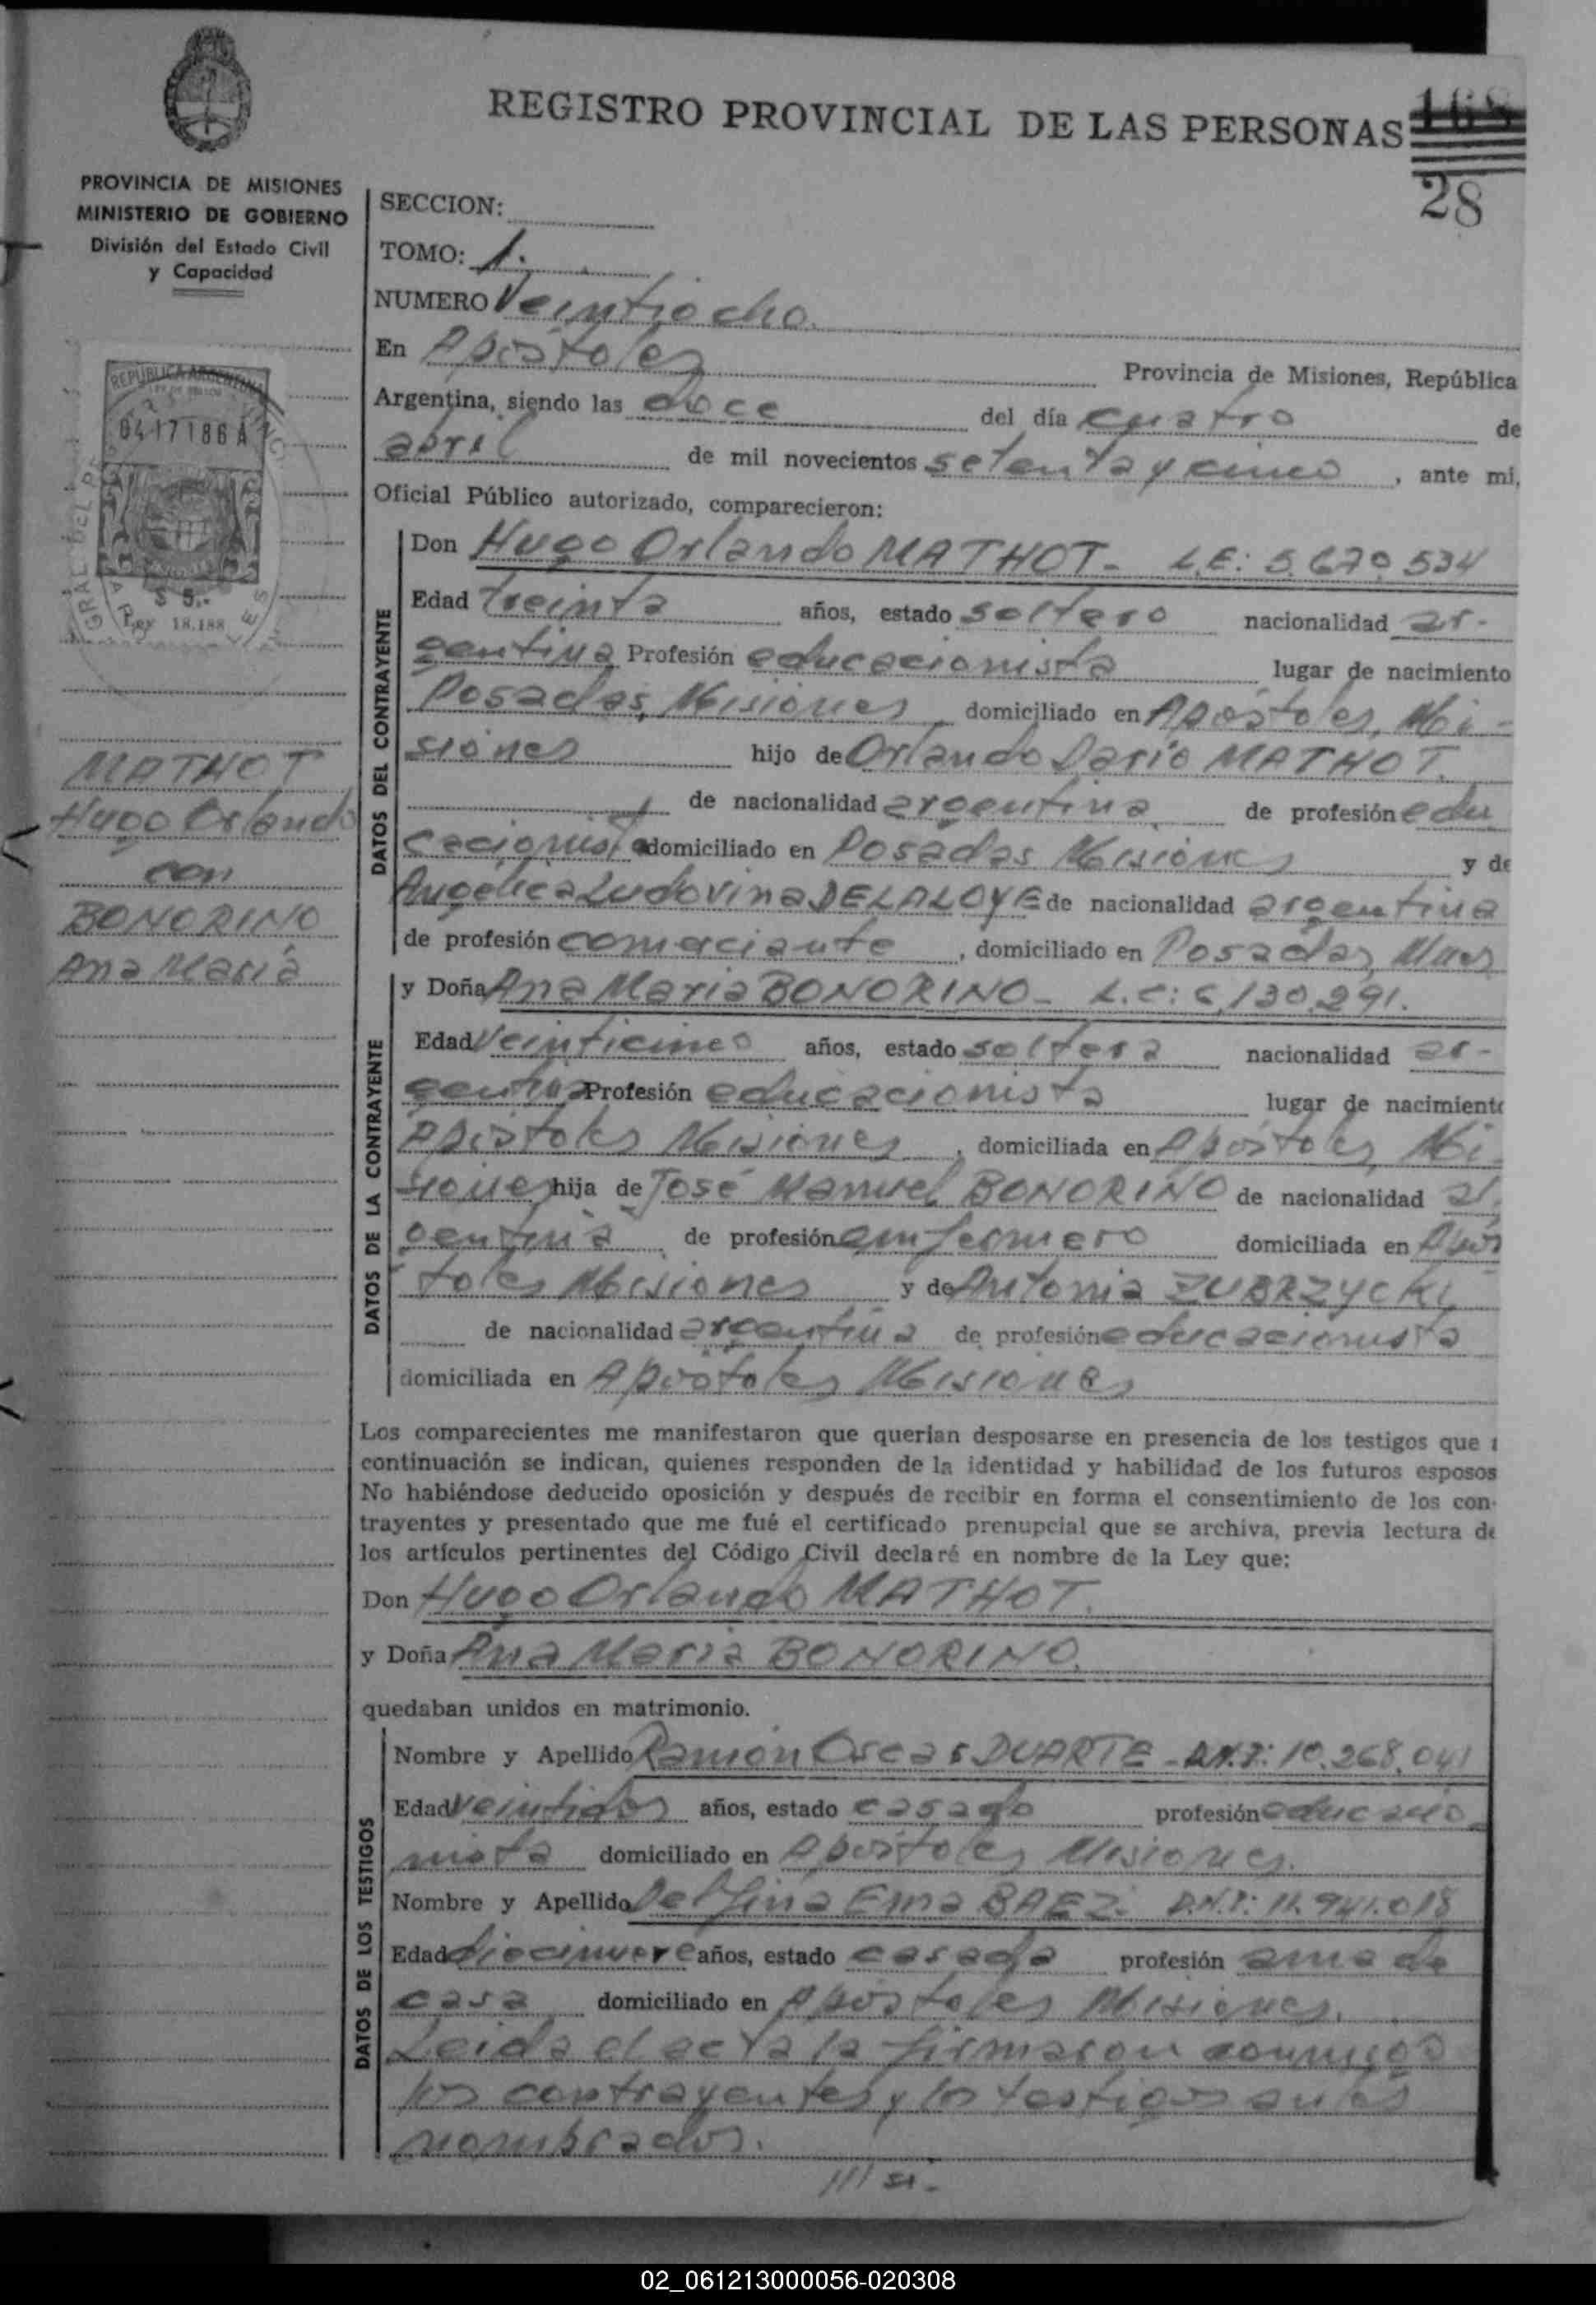 REGISTRO PROVINCIAL DE LAS PERSONAS 168
28
PROVINCIA DE MISIONES
MINISTERIO DE GOBIERNO
División del Estado Civil
y Capacidad
REPUBLICA ARGENTINA
0417186 A
$ 5.-
Ley 18.188
MATHOT
Hugo Orlando
con
BONORINO
Ana Maria
SECCION:
TOMO: 1.
NUMERO Veintiocho.
En Apóstoles Provincia de Misiones, República
Argentina, siendo las doce del día cuatro de
abril de mil novecientos setenta y cinco, ante mi,
Oficial Público autorizado, comparecieron:
DATOS DEL CONTRAYENTE
Don Hugo Orlando MATHOT- L.E: 5.670.534
Edad treinta años, estado soltero nacionalidad ar-
gentina Profesión educacionista lugar de nacimiento
Posadas, Misiones, domiciliado en Apóstoles, Mi-
siones hijo de Orlando Dario MATHOT.
de nacionalidad argentina de profesión edu
cacionista domiciliado en Posadas Misiones y de
Angélica Ludovina DELALOYE de nacionalidad argentina
de profesión comerciante, domiciliado en Posadas, Mnes
DATOS DE LA CONTRAYENTE
y Doña Ana Maria BONORINO- L.C: 6.130.291.
Edad Veinticinco años, estado soltera nacionalidad ar-
gentina Profesión educacionista lugar de nacimiento
Apóstoles Misiones, domiciliada en Apóstoles, Mi-
siones hija de José Manuel BONORINO de nacionalidad ar
gentina de profesión enfermero domiciliada en Após
toles Misiones y de Antonia ZUBRZYCKI
de nacionalidad argentina de profesión educacionista
domiciliada en Apóstoles Misiones
Los comparecientes me manifestaron que querian desposarse en presencia de los testigos que a
continuación se indican, quienes responden de la identidad y habilidad de los futuros esposos
No habiéndose deducido oposición y después de recibir en forma el consentimiento de los con-
trayentes y presentado que me fué el certificado prenupcial que se archiva, previa lectura de
los artículos pertinentes del Código Civil declaré en nombre de la Ley que:
Don Hugo Orlando MATHOT.
y Doña Ana Maria BONORINO.
quedaban unidos en matrimonio.
DATOS DE LOS TESTIGOS
Nombre y Apellido Ramón Oscar DUARTE - D.N.I: 10.268.041
Edad veintidos años, estado casado profesión educacio-
nista domiciliado en Apóstoles Misiones.
Nombre y Apellido Delfina Ema BAEZ- D.N.I: 11.941.018
Edad diecinueve años, estado casada profesión ama de
casa domiciliado en Apóstoles Misiones.
Leida el acta la firmaron conmigo
los contrayentes y los testigos antes
nombrados.
02_061213000056-020308